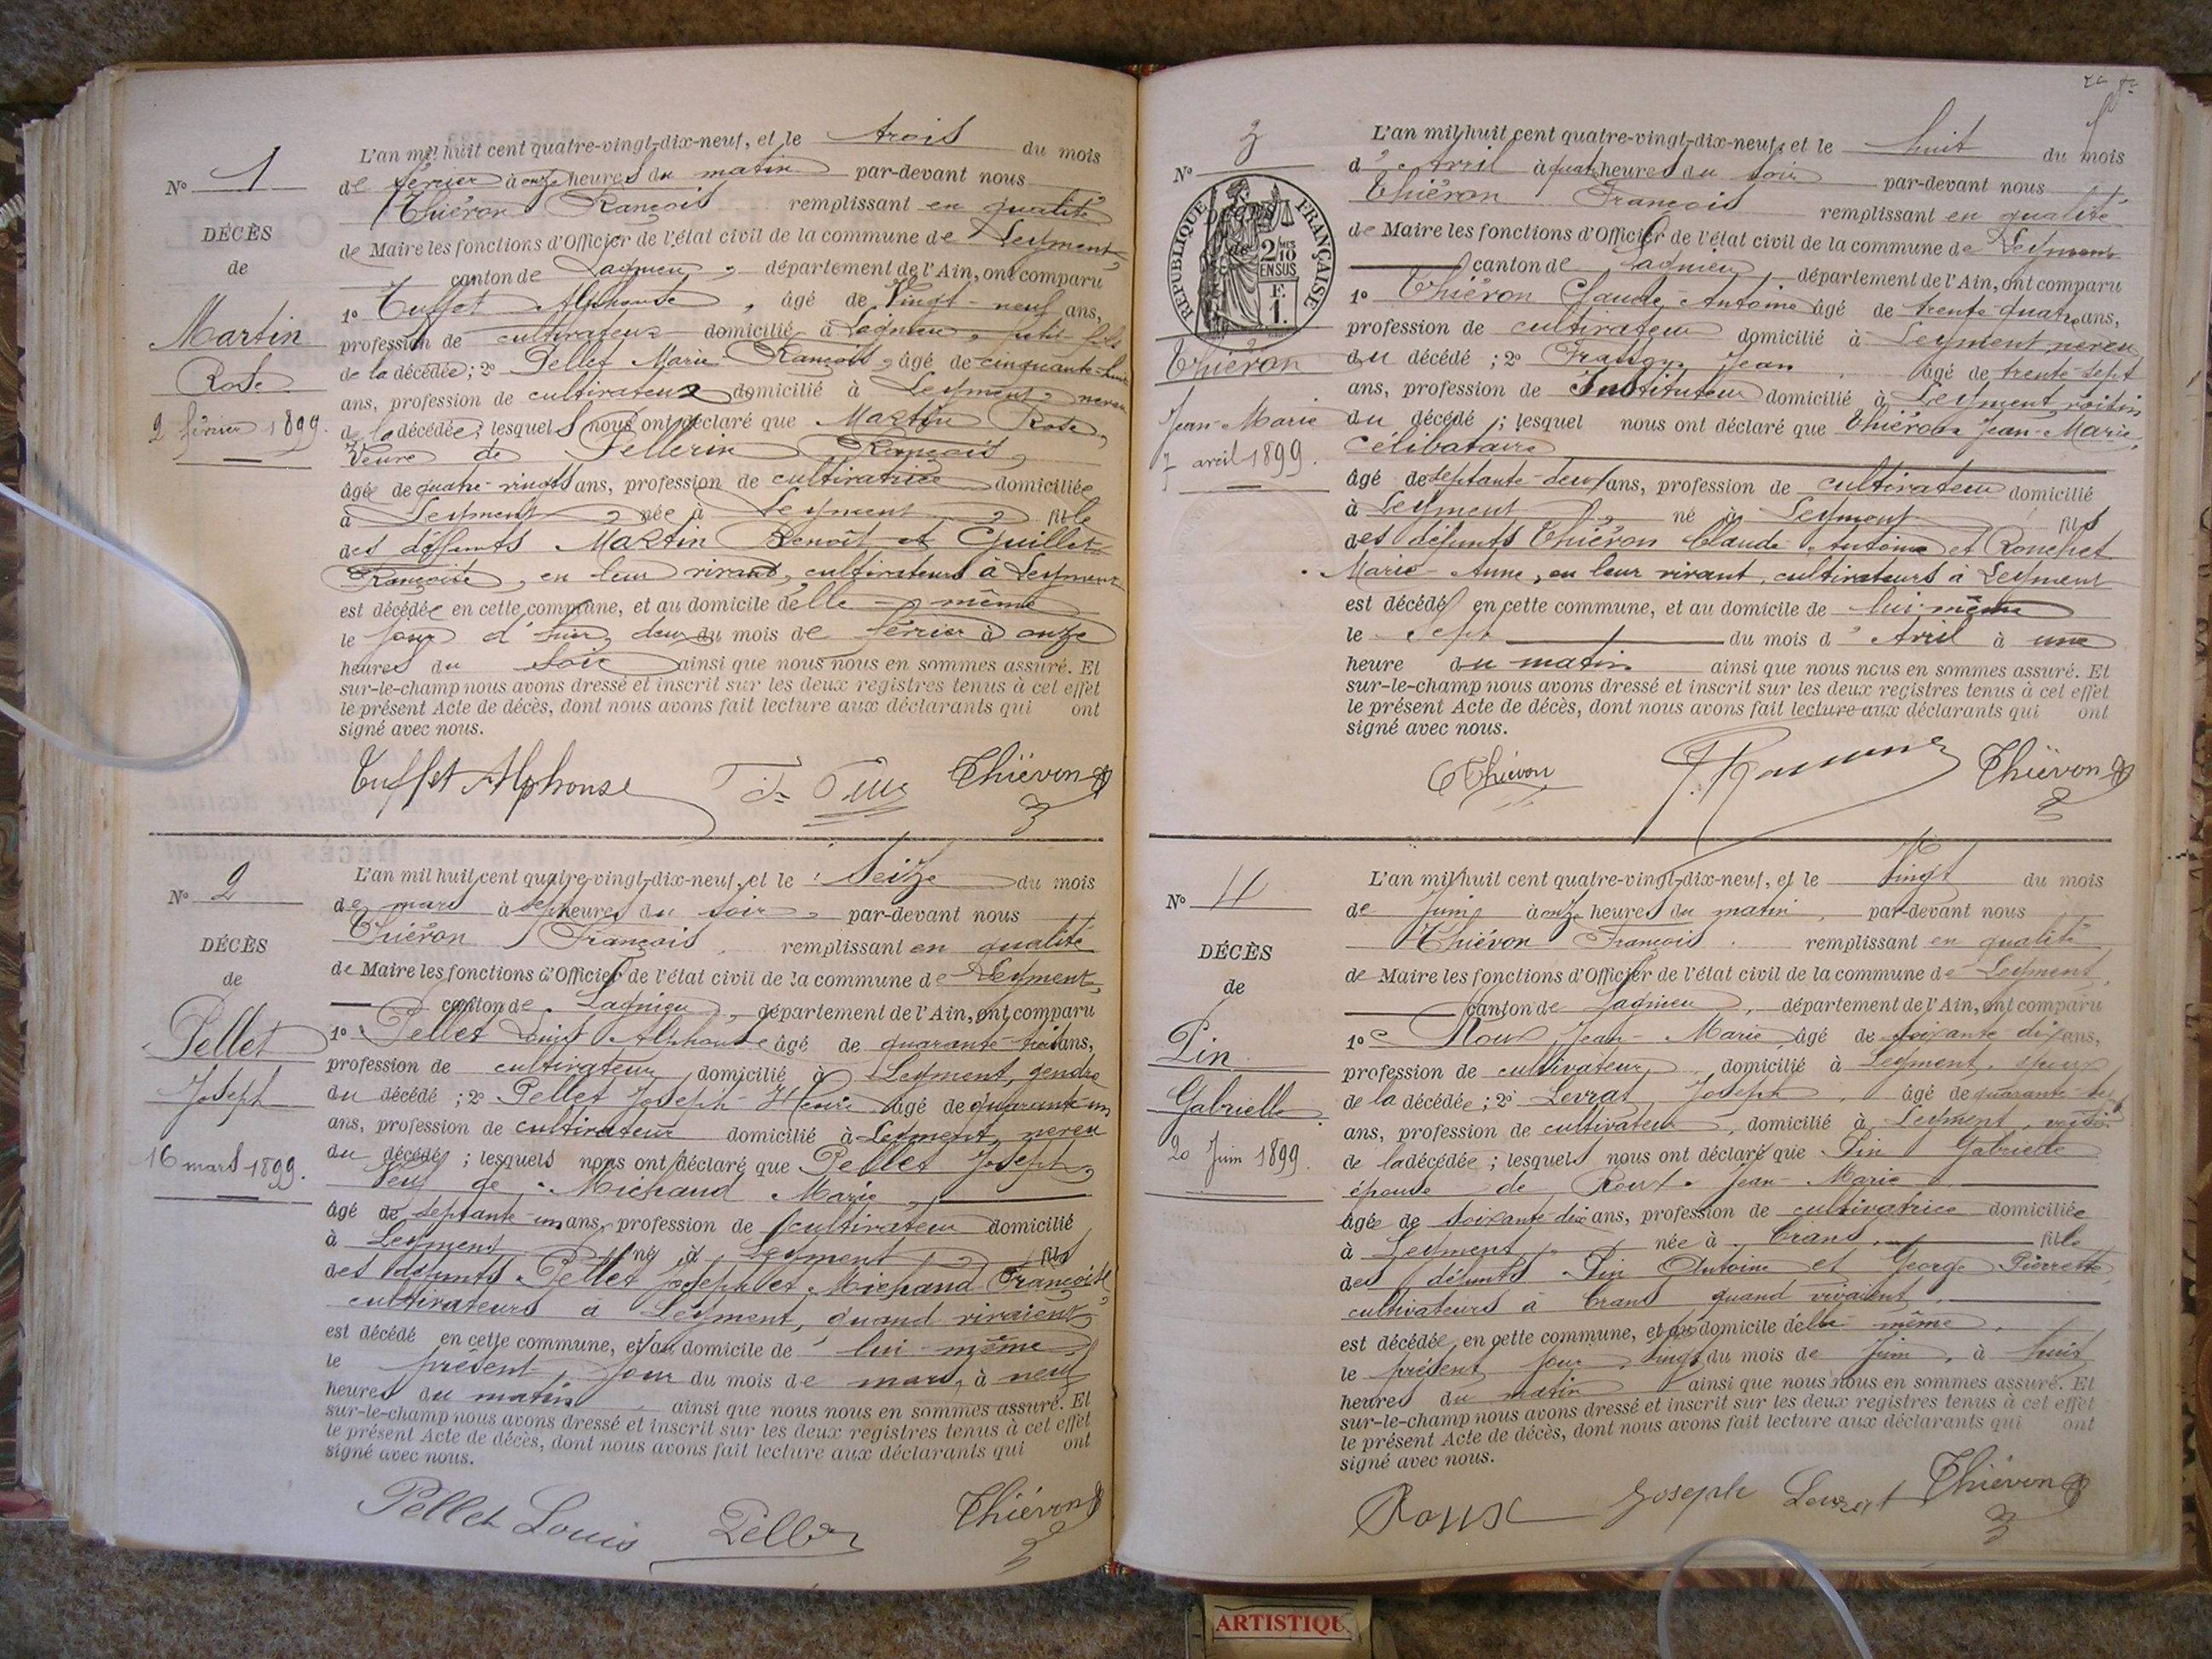 N° 1
DÉCÈS
de
Martin
Rose
2 février 1899.
L'an mil huit cent quatre-vingt-dix-neuf, et le trois du mois
de février à onze heures du matin par-devant nous
Thiévon François remplissant en qualité
de Maire les fonctions d'Officier de l'état civil de la commune de Leyment,
canton de Lagnieu, département de l'Ain, ont comparu
1° Tuffet Alphonse, âgé de vingt-neuf ans,
profession de cultivateur domicilié à Lagnieu, petit-fils
de la décédée; 2° Pellet Marie François, âgé de cinquante-huit
ans, profession de cultivateur domicilié à Leyment, neveu
de la décédée; lesquels nous ont déclaré que Martin Rose,
Veuve de Pellerin François,
âgée de quatre-vingts ans, profession de cultivatrice domiciliée
à Leyment, née à Leyment, fille
des défunts Martin Benoît et Guillet
Françoise, en leur vivant, cultivateurs à Leyment
est décédée en cette commune, et au domicile d'elle-même
le jour d'hier, deux du mois de février à onze
heures du soir ainsi que nous nous en sommes assuré. Et
sur-le-champ nous avons dressé et inscrit sur les deux registres tenus à cet effet
le présent Acte de décès, dont nous avons fait lecture aux déclarants qui ont
signé avec nous.
Tuffet Alphonse Thiévon
N° 2
DÉCÈS
de
Pellet
Joseph
16 mars 1899.
L'an mil huit cent quatre-vingt-dix-neuf, et le seize du mois
de mars à sept heures du soir, par-devant nous
Thiévon François, remplissant en qualité
de Maire les fonctions d'Officier de l'état civil de la commune de Leyment,
canton de Lagnieu, département de l'Ain, ont comparu
1° Pellet Louis Alphonse âgé de quarante-trois ans,
profession de cultivateur domicilié à Leyment, gendre
du décédé; 2° Pellet Joseph-Henri âgé de quarante-un
ans, profession de cultivateur domicilié à Leyment, neveu
du décédé; lesquels nous ont déclaré que Pellet Joseph,
Veuf de Michaud Marie,
âgé de septante-un ans, profession de cultivateur domicilié
à Leyment né à Leyment, fils
des défunts Pellet Joseph et Michaud Françoise,
cultivateurs à Leyment, quand vivaient,
est décédé en cette commune, et au domicile de lui-même
le présent jour du mois de mars, à neuf
heures du matin, ainsi que nous nous en sommes assuré. Et
sur-le-champ nous avons dressé et inscrit sur les deux registres tenus à cet effet
le présent Acte de décès, dont nous avons fait lecture aux déclarants qui ont
signé avec nous.
Pellet Louis Pellet Thiévon
N° 3
RÉPUBLIQUE FRANÇAISE
DÉCÈS
de
2/10 EN SUS
F.
1.
Thiévon
Jean-Marie
7 avril 1899.
L'an mil huit cent quatre-vingt-dix-neuf, et le huit du mois
d'Avril à quatre heures du soir par-devant nous
Thiévon François remplissant en qualité
de Maire les fonctions d'Officier de l'état civil de la commune de Leyment
canton de Lagnieu, département de l'Ain, ont comparu
1° Thiévon Claude-Antoine âgé de trente-quatre ans,
profession de cultivateur domicilié à Leyment neveu
du décédé; 2° Jean, âgé de trente-sept
ans, profession de Instituteur domicilié à Leyment, voisin
du décédé; lesquel nous ont déclaré que Thiévon Jean-Marie,
célibataire
âgé de septante-deux ans, profession de cultivateur domicilié
à Leyment, né à Leyment fils
des défunts Thiévon Claude-Antoine et Ronchet
Marie-Anne, en leur vivant, cultivateurs à Leyment
est décédé en cette commune, et au domicile de lui-même
le sept du mois d'Avril à une
heure du matin ainsi que nous nous en sommes assuré. Et
sur-le-champ nous avons dressé et inscrit sur les deux registres tenus à cet effet
le présent Acte de décès, dont nous avons fait lecture aux déclarants qui ont
signé avec nous.
C Thiévon Thiévon
N° 4
DÉCÈS
de
Pin
Gabrielle
20 Juin 1899.
L'an mil huit cent quatre-vingt-dix-neuf, et le vingt du mois
de Juin à onze heures du matin, par-devant nous
Thiévon François. remplissant en qualité
de Maire les fonctions d'Officier de l'état civil de la commune de Leyment,
canton de Lagnieu, département de l'Ain, ont comparu
1° Roux Jean-Marie âgé de soixante-dix ans,
profession de cultivateur, domicilié à Leyment, époux
de la décédée; 2° Levrat Joseph, âgé de
ans, profession de cultivateur, domicilié à Leyment, voisin
de la décédée; lesquels nous ont déclaré que Pin Gabrielle
épouse de Roux Jean-Marie
âgée de soixante-dix ans, profession de cultivatrice domiciliée
à Leyment, née à Crans, fille
des défunts Pin Antoine et George Pierrette,
cultivateurs à Crans quand vivaient,
est décédée en cette commune, et au domicile d'elle-même,
le présent jour, vingt du mois de Juin, à huit
heures du matin ainsi que nous nous en sommes assuré. Et
sur-le-champ nous avons dressé et inscrit sur les deux registres tenus à cet effet
le présent Acte de décès, dont nous avons fait lecture aux déclarants qui ont
signé avec nous.
Roux Joseph Levrat Thiévon
ARTISTIQU